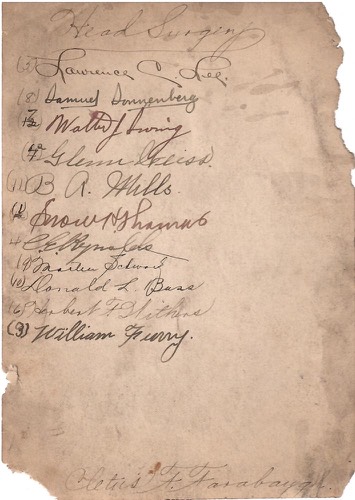 Head Surgery
(3) Lawrence C. Lee.
(8) Samuel Sonnenberg
Walter J Irving
Glenn Weiss
(11) B. A. Mills.
Thomas
4 C. E. Reynolds
(9) Schwarz
(10) Donald L. Bass
(6) Herbert F. Withers
(3) William Furry.
Cletus F. Farabaugh